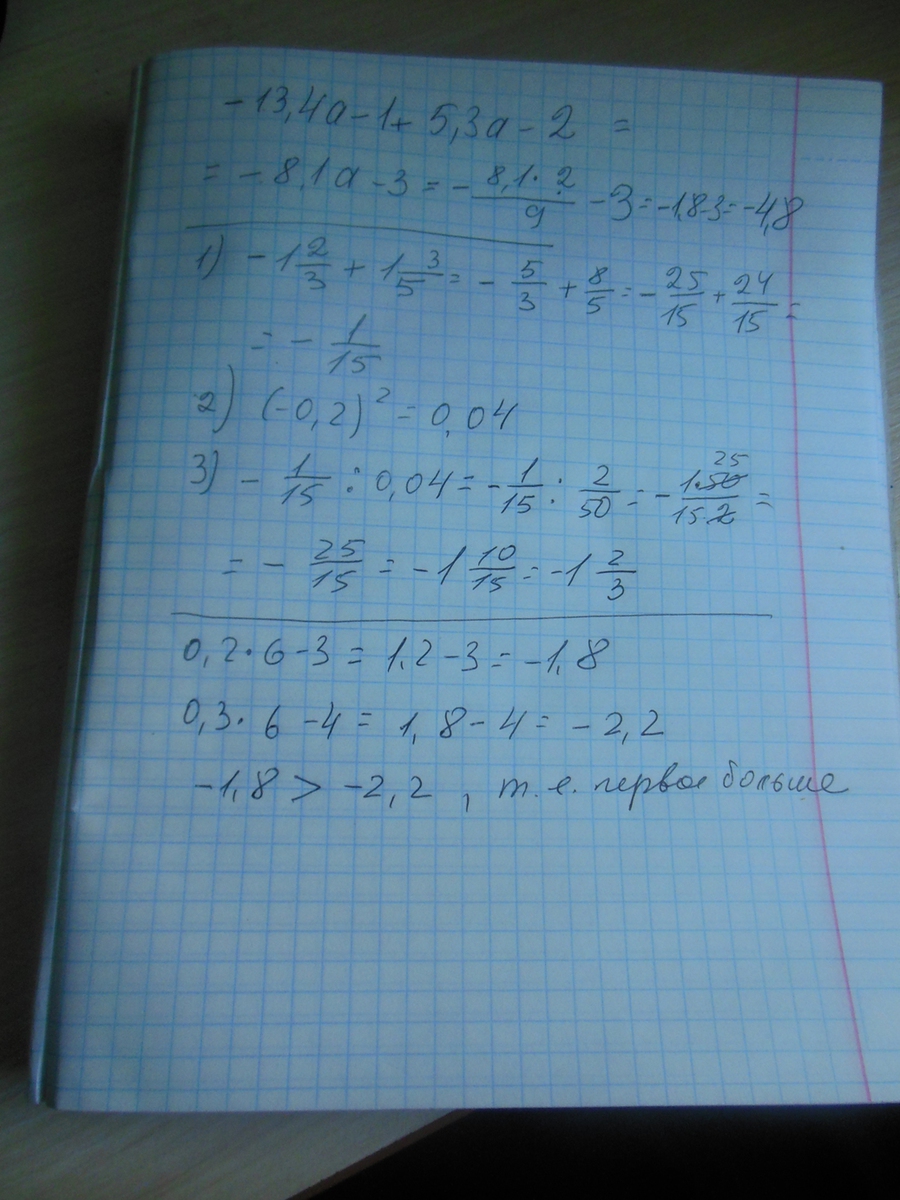 -13,4a-1+5,3a-2 =
= -8,1a-3 = - 8,1·2/9 -3=-1,8-3=-4,8
1) -1 2/3 + 1 3/5 = - 5/3 + 8/5 = - 25/15 + 24/15 =
= - 1/15
2) (-0,2)² = 0,04
3) - 1/15 : 0,04 = - 1/15 : 2/50 = - 1·50/15·2 25 =
= - 25/15 = -1 10/15 = -1 2/3
0,2·6-3 = 1,2-3 = -1,8
0,3·6-4 = 1,8-4 = -2,2
-1,8 > -2,2 , т.е. первое больше